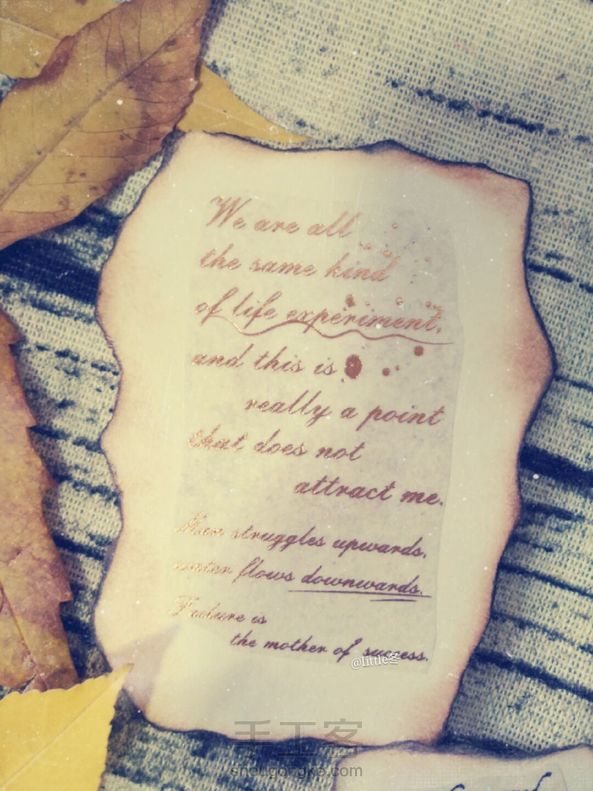 We are all
the same kind
of life experiment,
and this is
really a point
that does not
attract me.
Man struggles upwards,
water flows downwards.
Failure is
the mother of success.
@little冬
手工客
shougongke.com